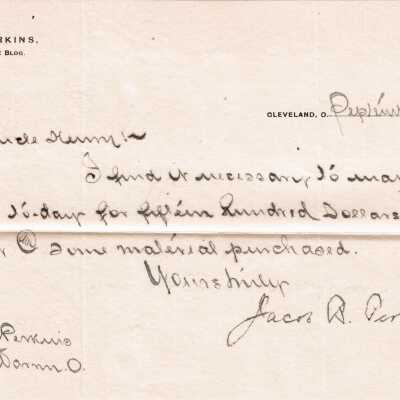 RKINS,
BLDG.
CLEVELAND, O.
I find it necessary to
to-day for fifteen hundred Dollars
@ some material purchased.
Yours truly
Jacob B. Per
Perkins
O.